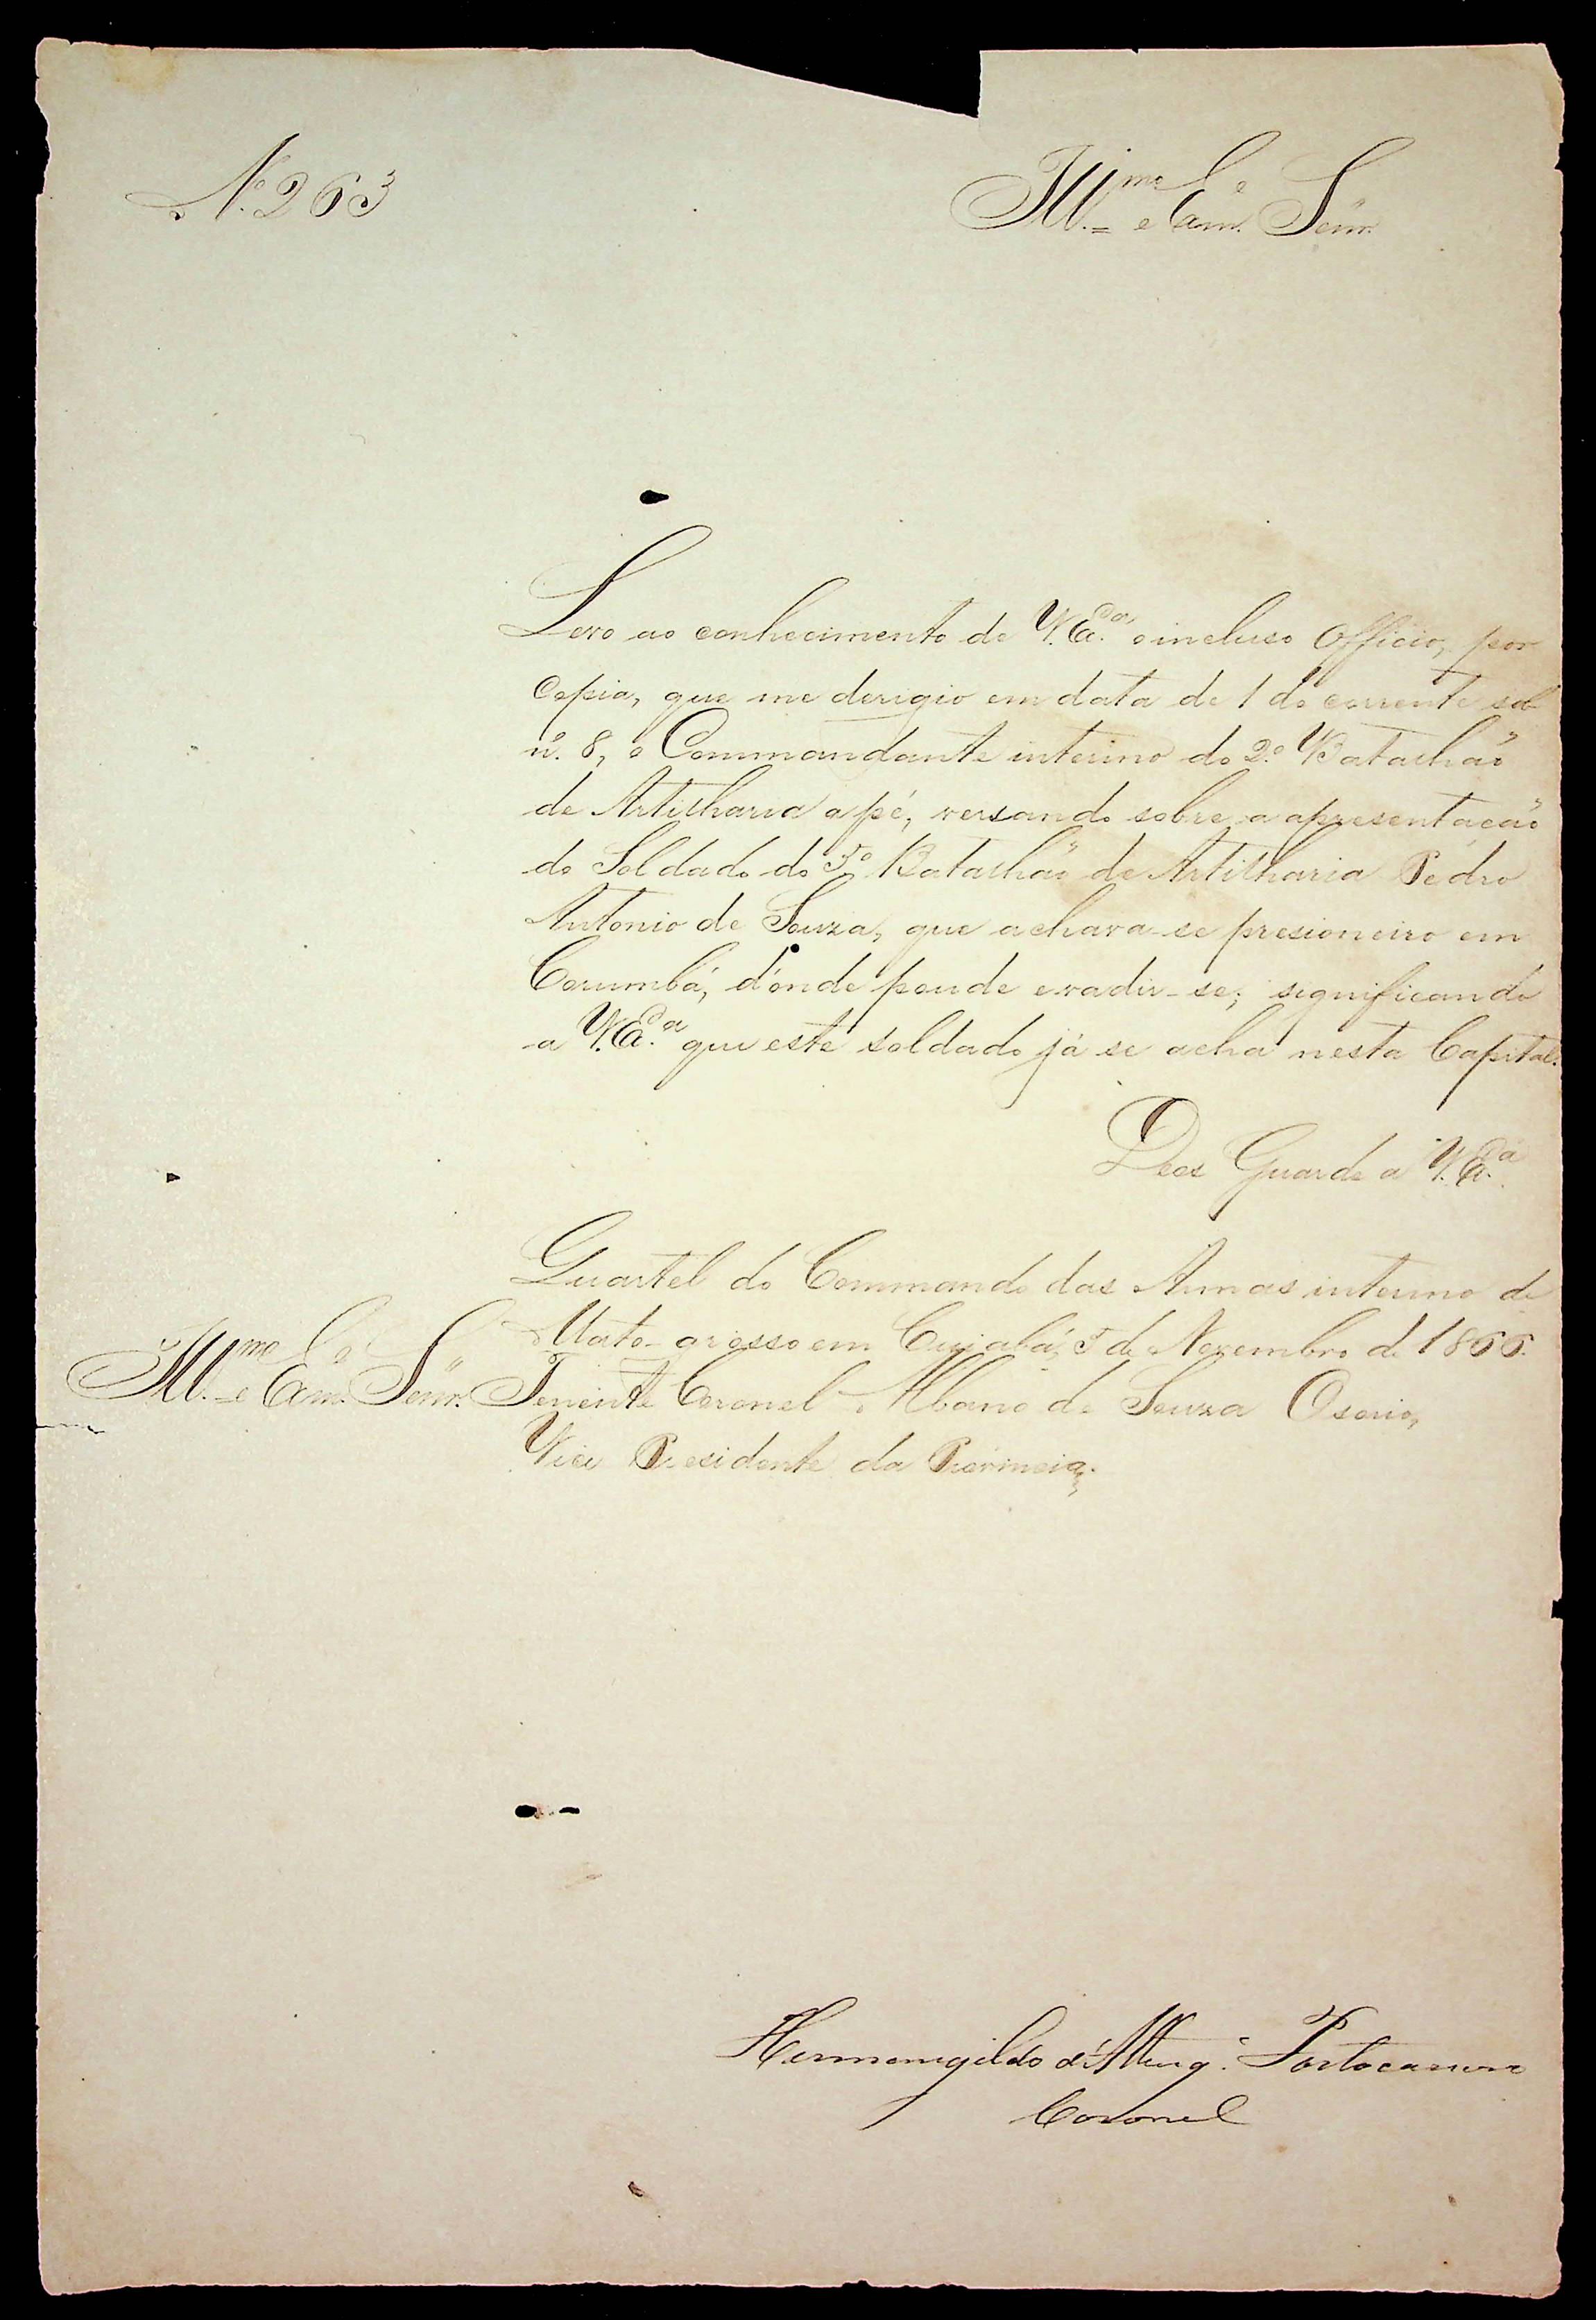 N.º 263
Ill.mo e Exm.º Señr.
Levo ao conhecimento de V. Ex.cia o incluso Officio, por
copia, que me derigio em data de 1 do corrente sob
n.º 8, o Commandante interino do 2.º Batalhão
de Artilharia a pé, versando sobre a apresentação
do Soldado do 5.º Batalhão de Artilharia Pedro
Antonio de Souza, que achava-se presioneiro em
Corumbá, d'onde poude evadir-se; significando
a V. Ex.cia que este soldado já se acha nesta Capital.
Deos Guarde a V. Ex.cia
Quartel do Commando das Armas interino de
Mato-grosso em Cuiabá, 5 de Novembro de 1866.
Ill.mo e Exm.º Señr. Tenente Coronel Albano de Souza Osorio,
Vice Presidente da Provincia.
Hermenegildo d'Albuq.e Portocarrero
Coronel